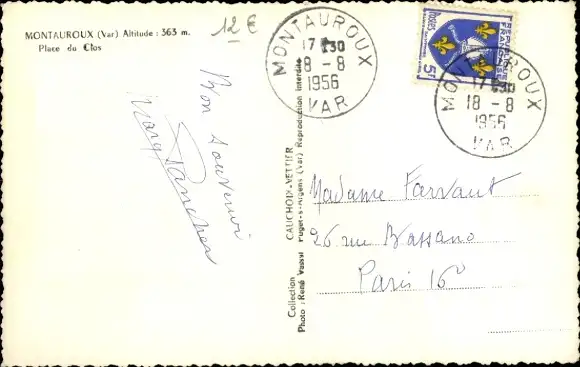 MONTAUROUX (Var) Altitude : 363 m.
Place du Clos
12 €
MONTAUROUX
17 H 30
18 - 8
1956
VAR
Postes
RÉPUBLIQUE
FRANÇAISE
5F
MONTAUROUX
17 H 30
18 - 8
1956
VAR
Bon souvenir
Collection CAUCHOIX-VETTIER
Photo : René Puget-s-Argens (Var) Reproduction interdite
Madame Farvaut
26 rue Bassano
Paris 16e